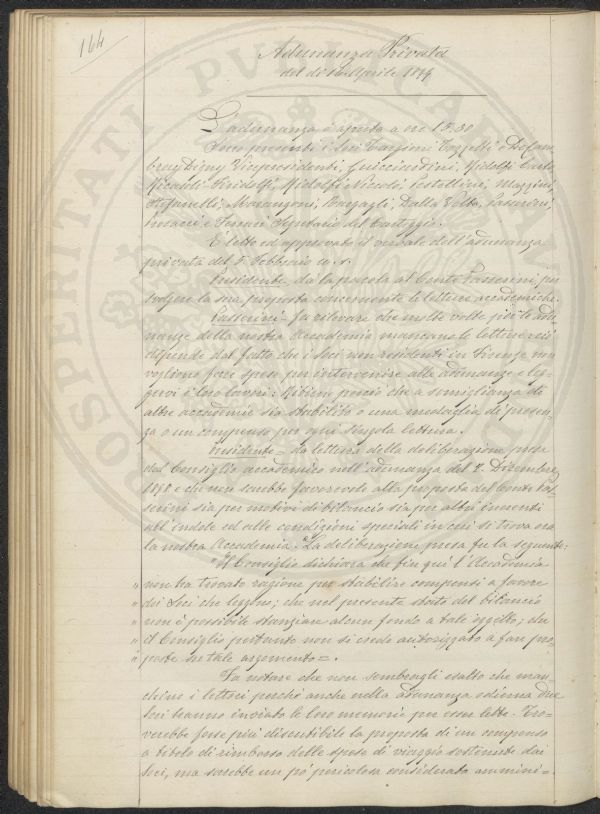 164
Adunanza Privata
del dì 16 Aprile 1894
L'adunanza è aperta a ore 15.30
Sono presenti i Soci Targioni Tozzetti e De Cam-
bray Digny Vicepresidenti, Guicciardini, Ridolfi Carlo
Ricasoli-Firidolfi, Ridolfi Niccolò, Pestellini, Mazzini,
Stefanelli, Marangoni, Bargagli, Dalla Volta, Passerini,
e Ferrari Segretario del Carteggio.
È letto ed approvato il verbale dell'adunanza
privata del 5 Febbraio u. s.
Presidente dà la parola al Conte Passerini, per
svolgere la sua proposta concernente le letture accademiche.
Passerini fa rilevare che molte volte per le adu-
nanze della nostra Accademia mancano le letture e ciò
dipende dal fatto che i Soci non residenti in Firenze non
vogliono fare spese per intervenire alle adunanze e leg-
gervi i loro lavori: Ritiene perciò che a somiglianza di
altre accademie sia stabilito o una medaglia di presen-
za o un compenso per ogni singola lettura.
Presidente - dà lettura della deliberazione presa
dal Consiglio accademico nell'adunanza del 2 Dicembre
e che non sarebbe favorevole alla proposta del Conte Pas-
serini sia per motivi di bilancio sia per altri inerenti
all'indole ed alle condizioni speciali in cui si trova ora
la nostra Accademia. La deliberazione presa fu la seguente:
"Il Consiglio dichiara che fin qui l'Accademia
" non ha trovato ragione per stabilire compensi a favore
" dei Soci che leggono; che nel presente stato del bilancio
" non è possibile stanziare alcun fondo a tale oggetto; che
" il Consiglio pertanto non si crede autorizzato a fare pro-
" poste su tale argomento =.
Fa notare che non sembragli esatto che man-
chino i lettori perché anche nella adunanza odierna due
Soci hanno inviato le loro memorie per esser lette. Tro-
verebbe forse più discutibile la proposta di un compenso
a titolo di rimborso delle spese di viaggio sostenute dai
Soci, ma sarebbe un pò pericolosa considerata ammini=